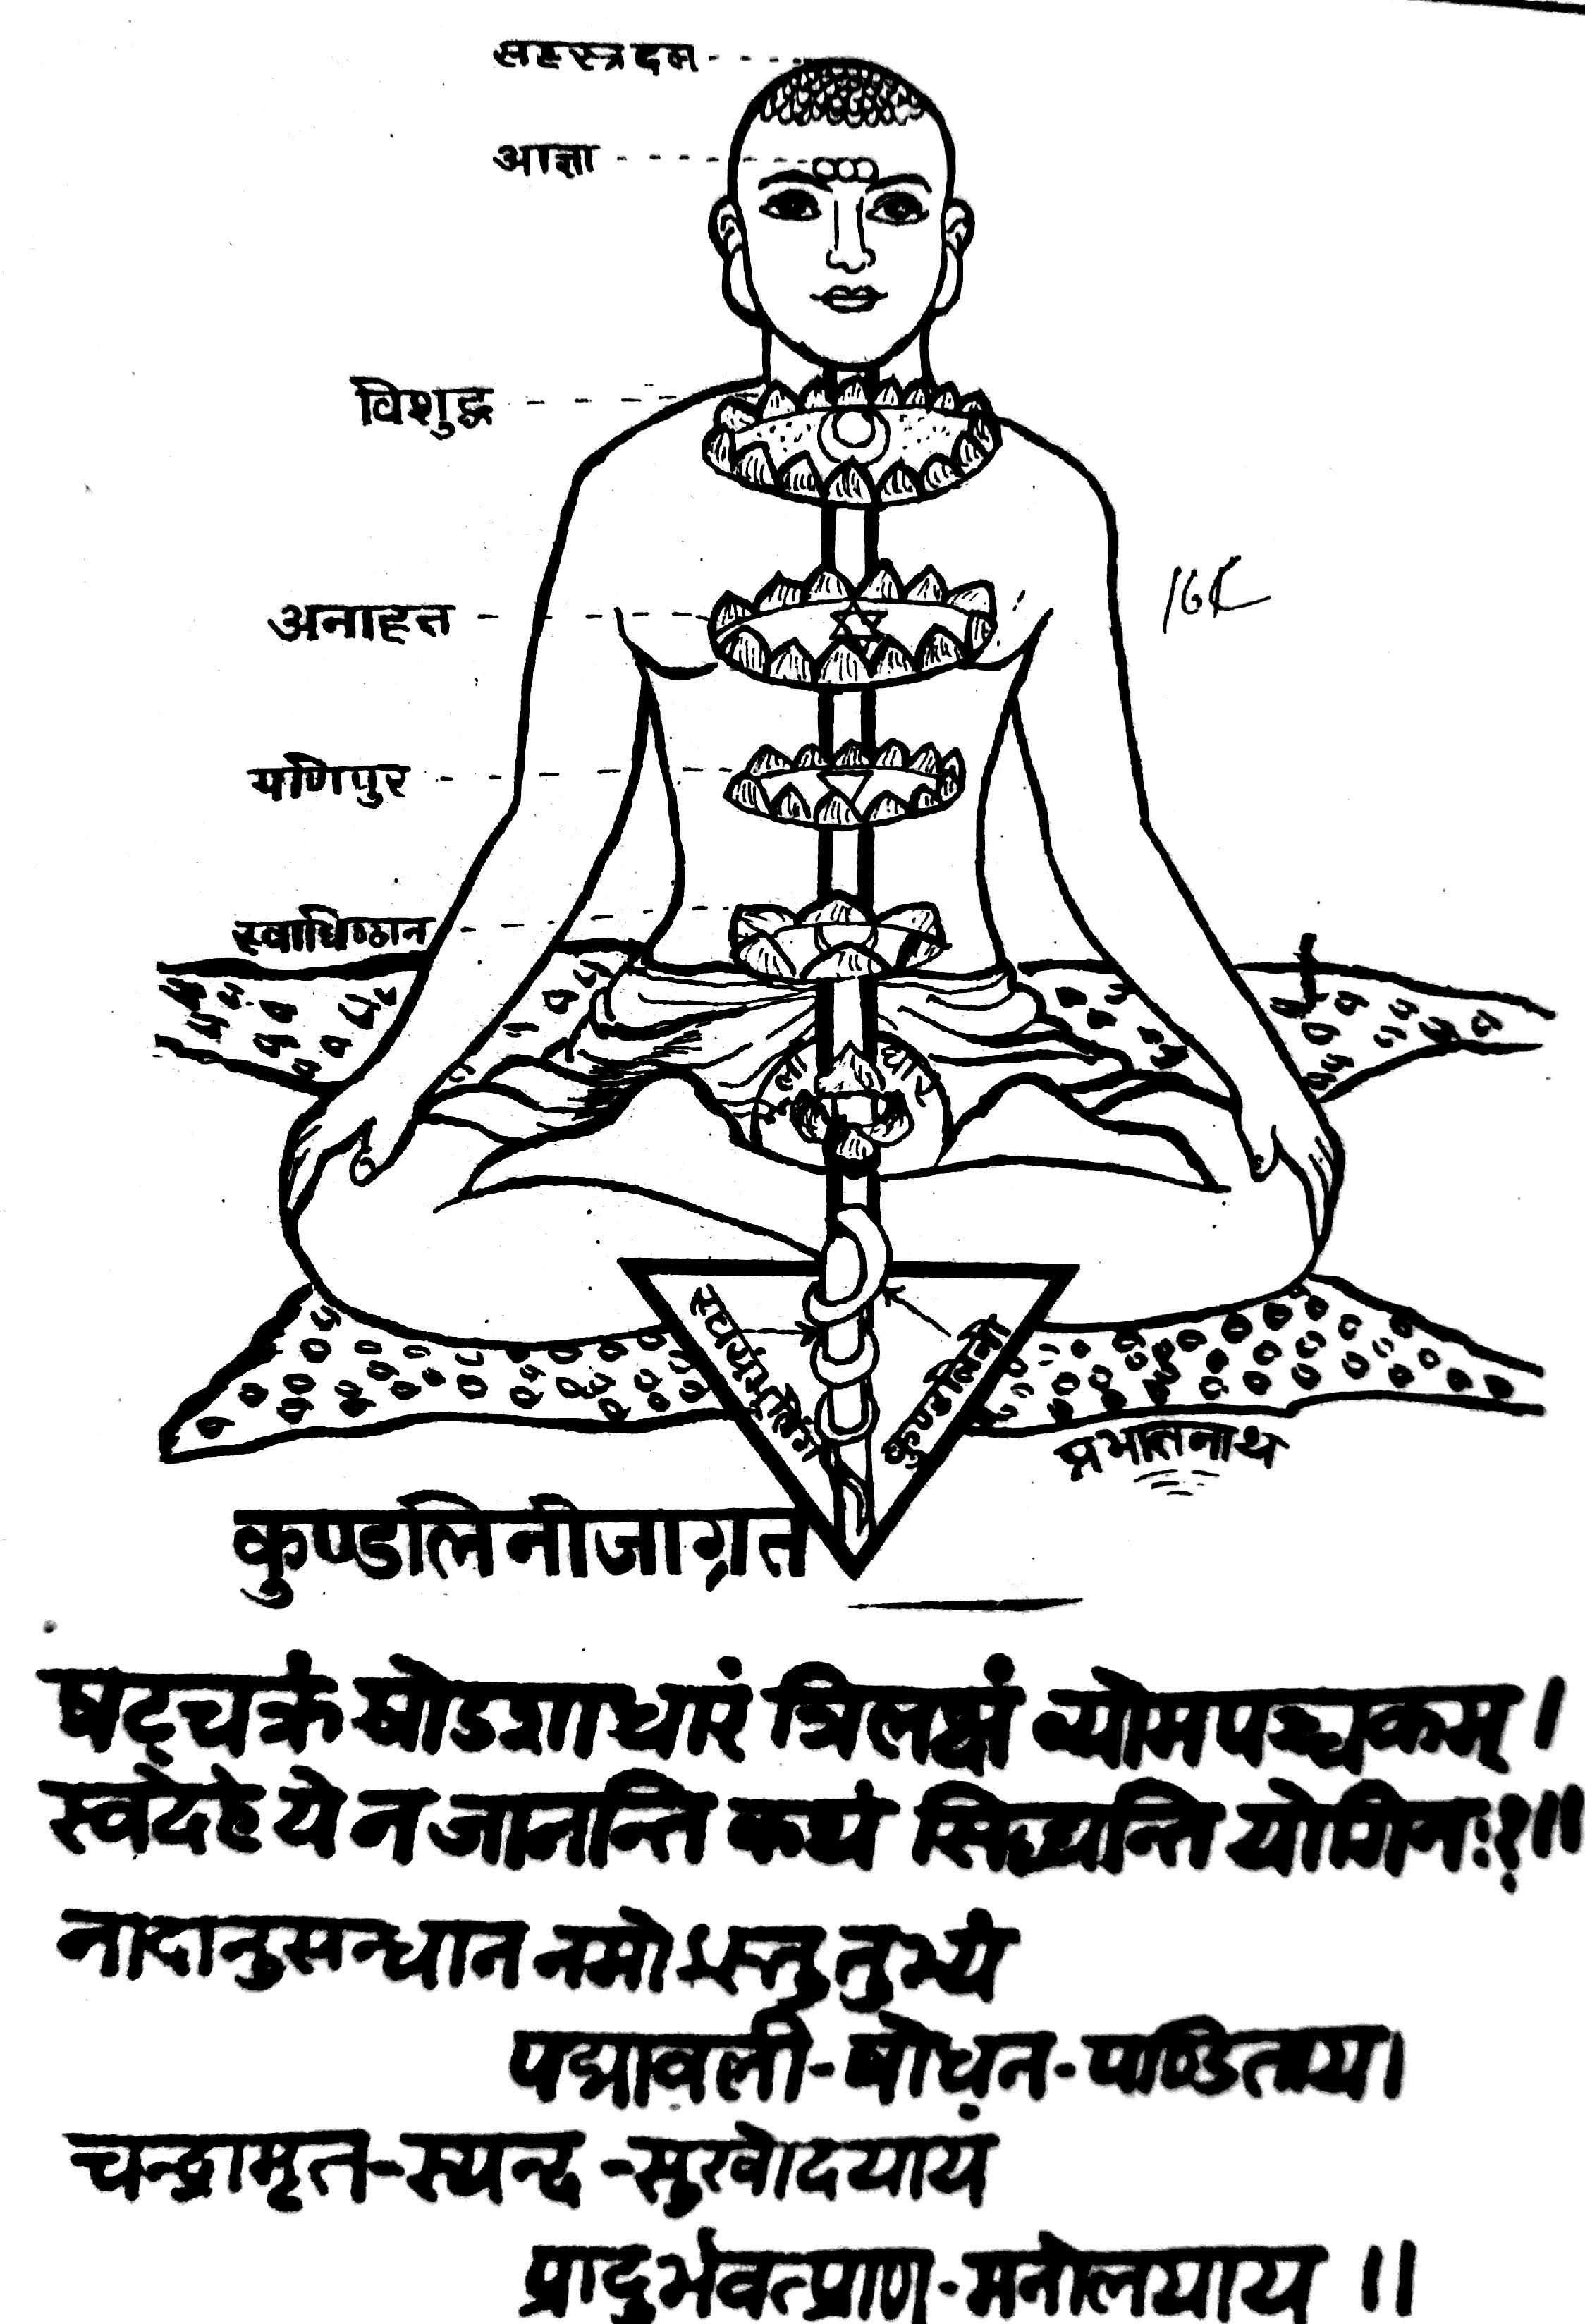 सहस्त्रदल
आज्ञा
विशुद्ध
अनाहत
मणिपुर
स्वाधिष्ठान
मूलाधार
स्वयंभूलिंग
कुण्डलिनी
प्रभातनाथ
कुण्डलिनीजाग्रत
षट्चक्रं षोडशाधारं त्रिलक्षं व्योमपञ्चकम् ।
स्वदेहे ये न जानन्ति कथं सिद्ध्यन्ति योगिनः?॥
नादानुसन्धान नमोऽस्तु तुभ्यं
पद्मावली-षोधन-पण्डिताय।
चन्द्रामृत-स्यन्द-सुखोदयायं
प्रादुर्भवत्प्राण-मनोलयाय ॥